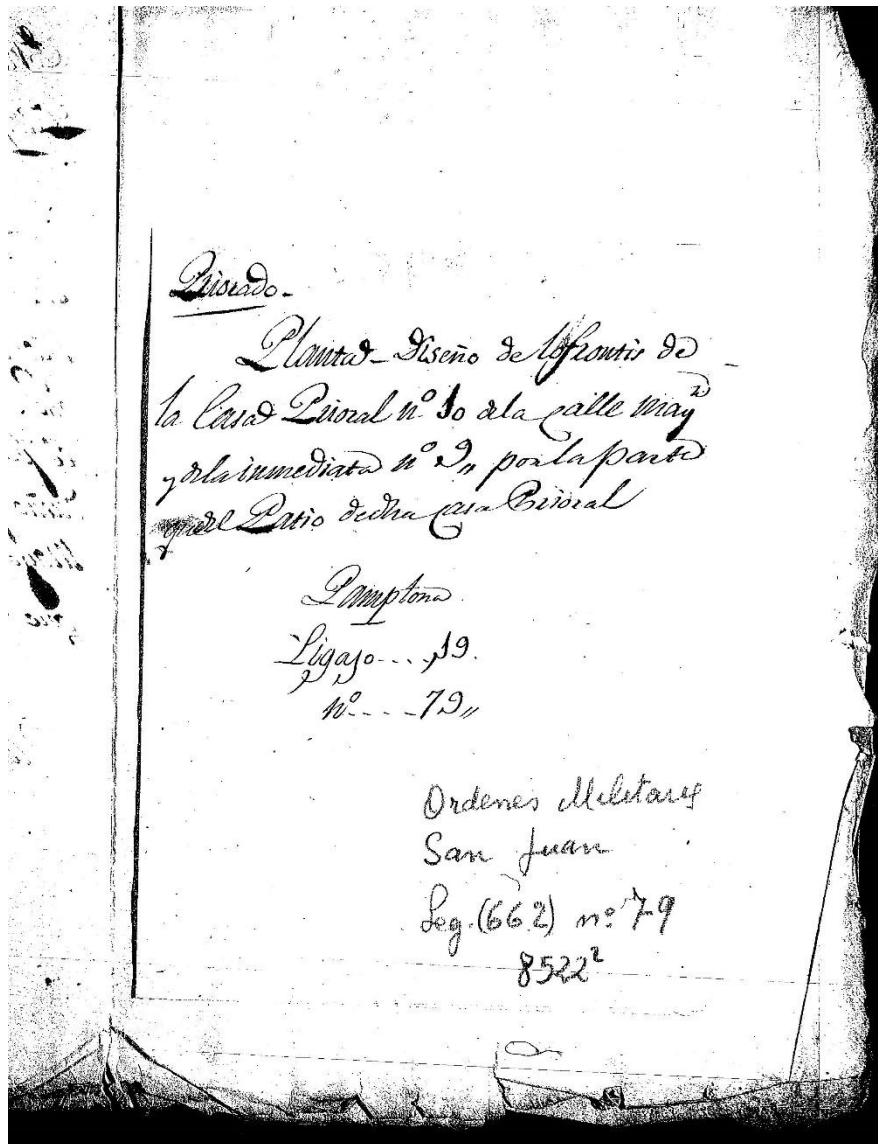 Priorado-
Planta-Diseño de los frontis de
la Casa Prioral nº 10 dela calle may.r
y dela inmediata nº 9,, por la parte
que el Patio de dha casa Prioral
Pamplona
Ligajo....19.
nº....79,,
Ordenes Militares
San Juan
Leg.(662) nº 79
8522²